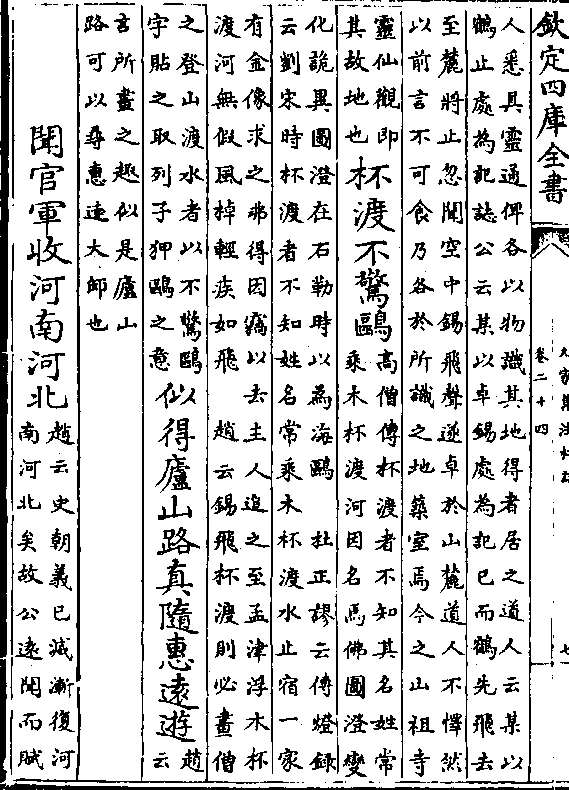 欽定四庫全書
九家集注杜詩
卷二十四
七
人悉具靈通俾各以物識其地得者居之道人云某以
鶴止處為記誌公云某以卓錫處為記已而鶴先飛去
至麓將止忽聞空中錫飛聲遂卓於山麓道人不懌然
以前言不可食乃各於所識之地築室焉今之山祖寺
靈仙觀即
其故地也
杯渡不驚鷗
高僧傳杯渡者不知其名姓常
乘木杯渡河因名焉佛圖澄變
化詭異圖澄在石勒時以為海鷗　杜正謬云傳燈録
云劉宋時杯渡者不知姓名常乘木杯渡水止宿一家
有金像求之弗得因竊以去主人追之至孟津浮木杯
渡河無假風棹輕疾如飛　趙云錫飛杯渡則必畫僧
之登山渡水者以不驚鷗
字貼之取列子狎鷗之意
似得廬山路真隨惠遠遊
趙
云
言所畫之趣似是廬山
路可以尋惠遠大師也
聞官軍收河南河北
趙云史朝義已滅漸復河
南河北矣故公遠聞而賦